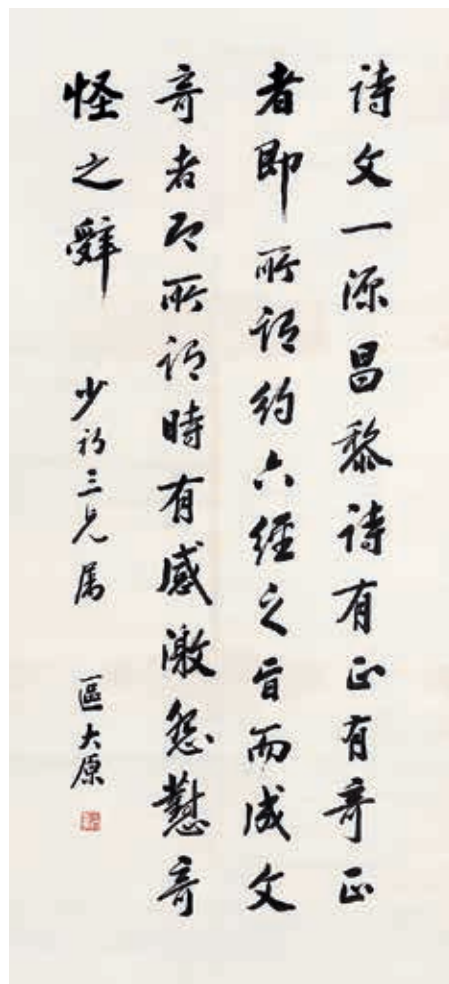 詩文一源昌黎詩有正有奇正
者即所謂約六經之旨而成文
奇者即所謂時有感激怨懟奇
怪之辭 少初三兄属 區大原